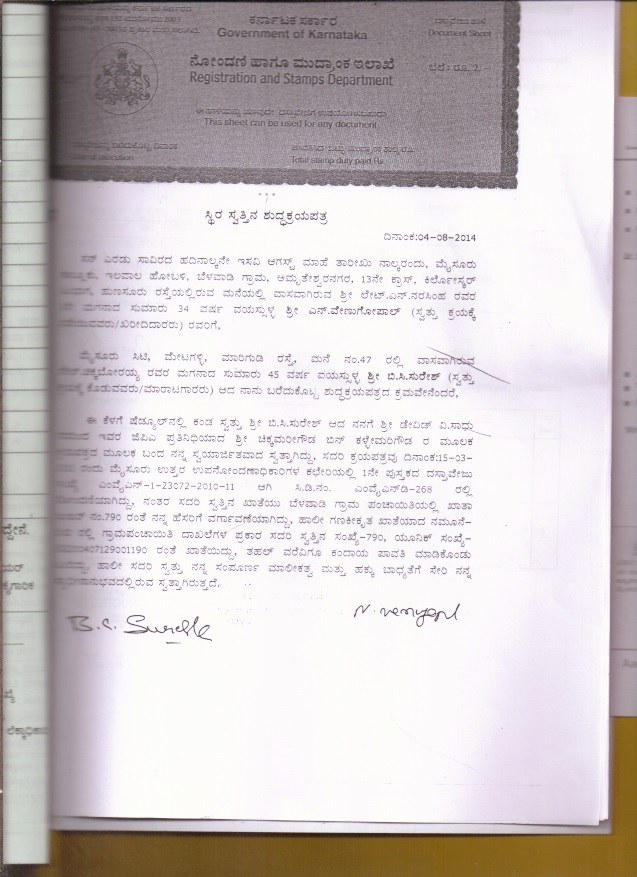 ಕರ್ನಾಟಕ ಸರ್ಕಾರ
Government of Karnataka
Document Sheet
ನೋಂದಣಿ ಹಾಗೂ ಮುದ್ರಾಂಕ ಇಲಾಖೆ
Registration and Stamps Department
ಬೆಲೆ: ರೂ. 2/-
This sheet can be used for any document
Total stamp duty paid Rs.
ಸ್ಥಿರ ಸ್ವತ್ತಿನ ಶುದ್ಧಕ್ರಯಪತ್ರ
ದಿನಾಂಕ:04-08-2014
ಸನ್ ಎರಡು ಸಾವಿರದ ಹದಿನಾಲ್ಕನೇ ಇಸವಿ ಆಗಸ್ಟ್ ಮಾಹೆ ತಾರೀಖು ನಾಲ್ಕರಂದು, ಮೈಸೂರು
ಇಲವಾಲ ಹೋಬಳಿ, ಬೆಳವಾಡಿ ಗ್ರಾಮ, ಅಮೃತೇಶ್ವರನಗರ, 13ನೇ ಕ್ರಾಸ್, ಕಿರ್ಲೋಸ್ಕರ್
ಹುಣಸೂರು ರಸ್ತೆಯಲ್ಲಿರುವ ಮನೆಯಲ್ಲಿ ವಾಸವಾಗಿರುವ ಶ್ರೀ ಲೇಟ್.ಎನ್.ನರಸಿಂಹ ರವರ
ಮಗನಾದ ಸುಮಾರು 34 ವರ್ಷ ವಯಸ್ಸುಳ್ಳ ಶ್ರೀ ಎನ್.ವೇಣುಗೋಪಾಲ್ (ಸ್ವತ್ತು ಕ್ರಯಕ್ಕೆ
ರವರಿಗೆ,
ಮೈಸೂರು ಸಿಟಿ, ಮೇಟಗಳ್ಳಿ, ಮಾರಿಗುಡಿ ರಸ್ತೆ, ಮನೆ ನಂ.47 ರಲ್ಲಿ ವಾಸವಾಗಿರುವ
ರವರ ಮಗನಾದ ಸುಮಾರು 45 ವರ್ಷ ವಯಸ್ಸುಳ್ಳ ಶ್ರೀ ಬಿ.ಸಿ.ಸುರೇಶ್ (ಸ್ವತ್ತು
ಕೊಡುವವರು/ಮಾರಾಟಗಾರರು) ಆದ ನಾನು ಬರೆದುಕೊಟ್ಟ ಶುದ್ಧಕ್ರಯಪತ್ರದ ಕ್ರಮವೇನೆಂದರೆ,
ಈ ಕೆಳಗೆ ಷೆಡ್ಯೂಲ್‌ನಲ್ಲಿ ಕಂಡ ಸ್ವತ್ತು ಶ್ರೀ ಬಿ.ಸಿ.ಸುರೇಶ್ ಆದ ನನಗೆ ಶ್ರೀ ಡೇವಿಡ್ ವಿ.ಸಾಧು
ಇವರ ಜಿಪಿಎ ಪ್ರತಿನಿಧಿಯಾದ ಶ್ರೀ ಚಿಕ್ಕಮರೀಗೌಡ ಬಿನ್ ಕಳ್ಳೇಮರಿಗೌಡ ರ ಮೂಲಕ
ಮೂಲಕ ಬಂದ ನನ್ನ ಸ್ವಯಾರ್ಜಿತವಾದ ಸ್ವತ್ತಾಗಿದ್ದು, ಸದರಿ ಕ್ರಯಪತ್ರವು ದಿನಾಂಕ:15-03-
ರಂದು ಮೈಸೂರು ಉತ್ತರ ಉಪನೋಂದಣಾಧಿಕಾರಿಗಳ ಕಛೇರಿಯಲ್ಲಿ 1ನೇ ಪುಸ್ತಕದ ದಸ್ತಾವೇಜು
ಎಂವೈಎನ್-1-23072-2010-11 ಆಗಿ ಸಿ.ಡಿ.ನಂ. ಎಂವೈಎನ್‌ಡಿ-268 ರಲ್ಲಿ
ನಂತರ ಸದರಿ ಸ್ವತ್ತಿನ ಖಾತೆಯು ಬೆಳವಾಡಿ ಗ್ರಾಮ ಪಂಚಾಯಿತಿಯಲ್ಲಿ ಖಾತಾ
ನಂ.790 ರಂತೆ ನನ್ನ ಹೆಸರಿಗೆ ವರ್ಗಾವಣೆಯಾಗಿದ್ದು, ಹಾಲೀ ಗಣಕೀಕೃತ ಖಾತೆಯಾದ ನಮೂನೆ-
ರಲ್ಲಿ ಗ್ರಾಮಪಂಚಾಯಿತಿ ದಾಖಲೆಗಳ ಪ್ರಕಾರ ಸದರಿ ಸ್ವತ್ತಿನ ಸಂಖ್ಯೆ-790, ಯೂನಿಕ್ ಸಂಖ್ಯೆ-
ರಂತೆ ಖಾತೆಯಿದ್ದು, ತಹಲ್ ವರೆವಿಗೂ ಕಂದಾಯ ಪಾವತಿ ಮಾಡಿಕೊಂಡು
ಹಾಲೀ ಸದರಿ ಸ್ವತ್ತು ನನ್ನ ಸಂಪೂರ್ಣ ಮಾಲೀಕತ್ವ ಮತ್ತು ಹಕ್ಕು ಬಾಧ್ಯತೆಗೆ ಸೇರಿ ನನ್ನ
ಸ್ವತ್ತಾಗಿರುತ್ತದೆ.
B.C. Suresh